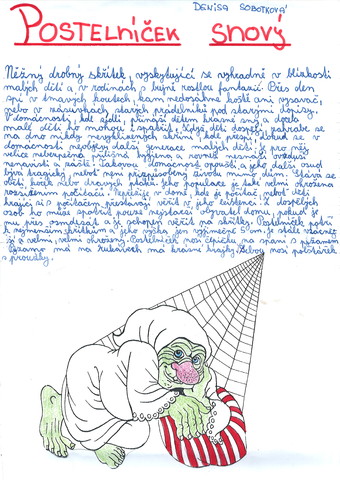 DENISA SOBOTKOVÁ
POSTELNÍČEK SNOVÝ
Něžný drobný skřítek, vyskytující se výhradně v blízkosti
malých dětí a v rodinách s bujně rostlou fantazií. Přes den
spí v tmavých koutech, kam nedosáhne koště ani vysavač,
nebo v zásuvkách starých prádelníků pod starými
V domácnosti, kde sídlí, přináší dětem krásné sny a docela
malé děti ho mohou i spatřit. Když děti dospějí, zahrabe se
na dno nikdy nevyklizených skříní, kde přespí, dokud se v
domácnosti neobjeví další generace malých dětí. Je pro něj
velice nebezpečná přílišná hygiena a rovněž nesnáší ovzduší
nenávisti a zášti. Takovou domácnost opouští a jeho další osud
bývá tragický, neboť není přizpůsobený životu mimo dům. Stává se
obětí koček nebo dravých ptáků. Jeho populace je také velmi ohrožena
rozšířením počítačů. Nepřežije v domě, kde je počítač, neboť děti
hrající si s počítačem přestávají věřit v jeho existenci. Z dospělých
osob ho může spatřit pouze nejstarší obyvatel domu, pokud je
mu přes osmdesát a je schopen věřit na skřítky. Postelníček patří
k nejmenším skřítkům a jeho výška jen výjimečně 5 cm. Je stále vzácněj-
ší a velmi, velmi ohrožený. Postelníček nosí čepičku na spaní s pyžamem.
Pyžamo má na rukávech má krásné krajky. Sebou nosí polštářek
s proužky.